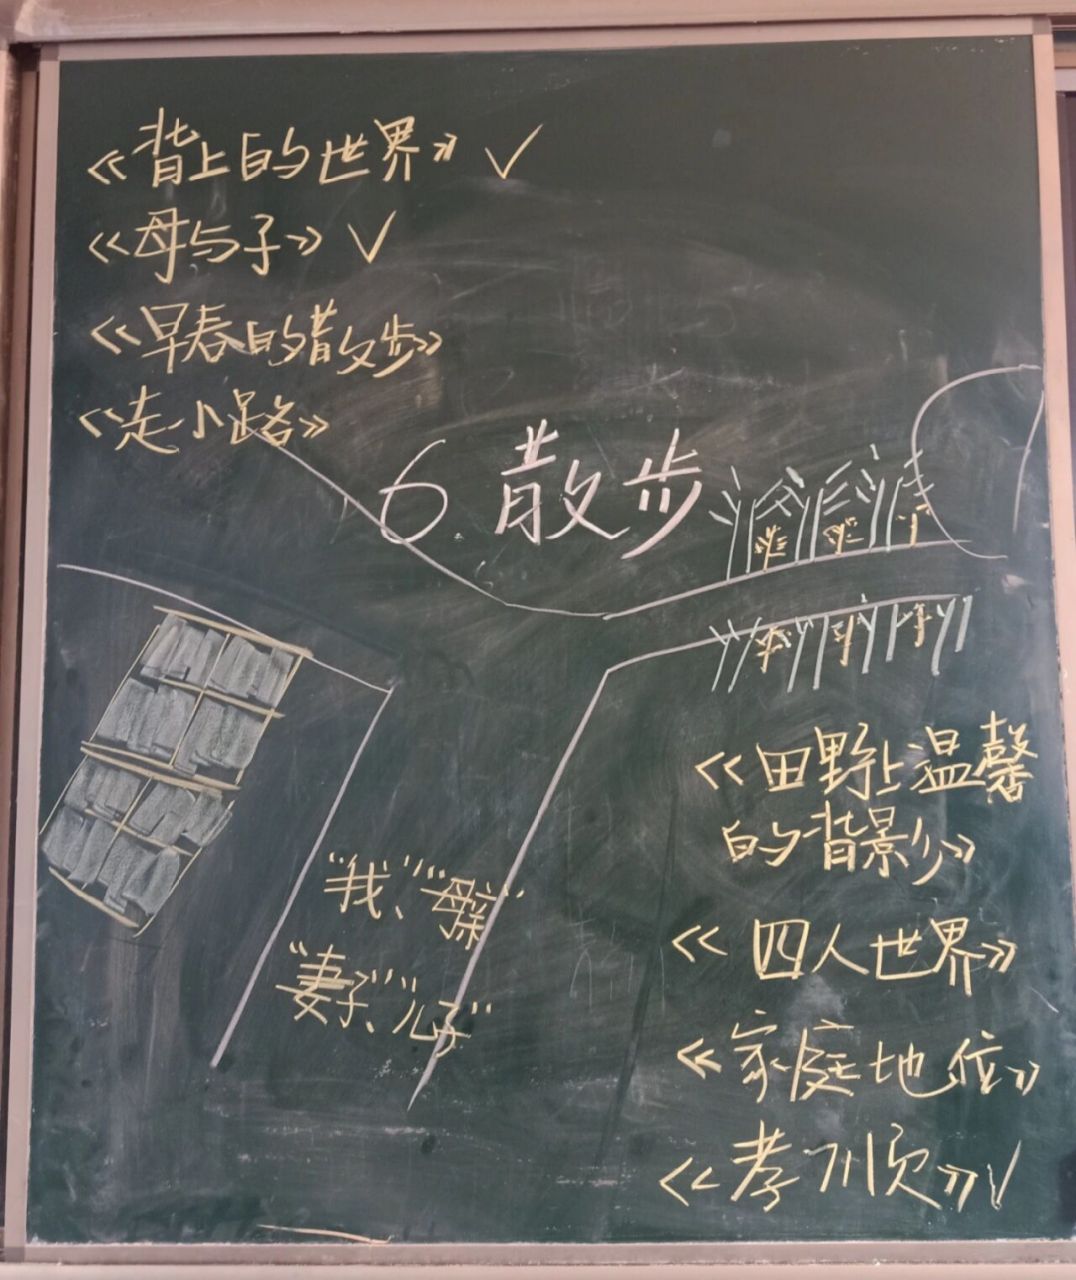 《背上的世界》✓
《母与子》✓
《早春的散步》
《走小路》
6.散步
“我”、“母亲”
“妻子”、“儿子”
《田野上温馨
的背影》
《四人世界》
《家庭地位》
《孝顺》✓